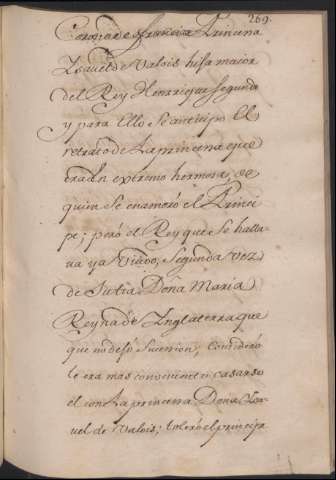 269.
Corona de francia Princesa
Ysavel de Valois hija maior
del Rey Henrique segundo
y para ello se anticipo el
retrato de la princesa que
era en extremo hermosa, de
quien se enamoró el Princi
pe; peró el Rey que se halla
ua ya Viudo, segunda vez
de su tia Dona Maria
Reyna de Ynglaterra que
que no dejó sucesion, considero
le era mas conviniente casarse
el con la princesa Dona Ysa
uel de Valois; el principe